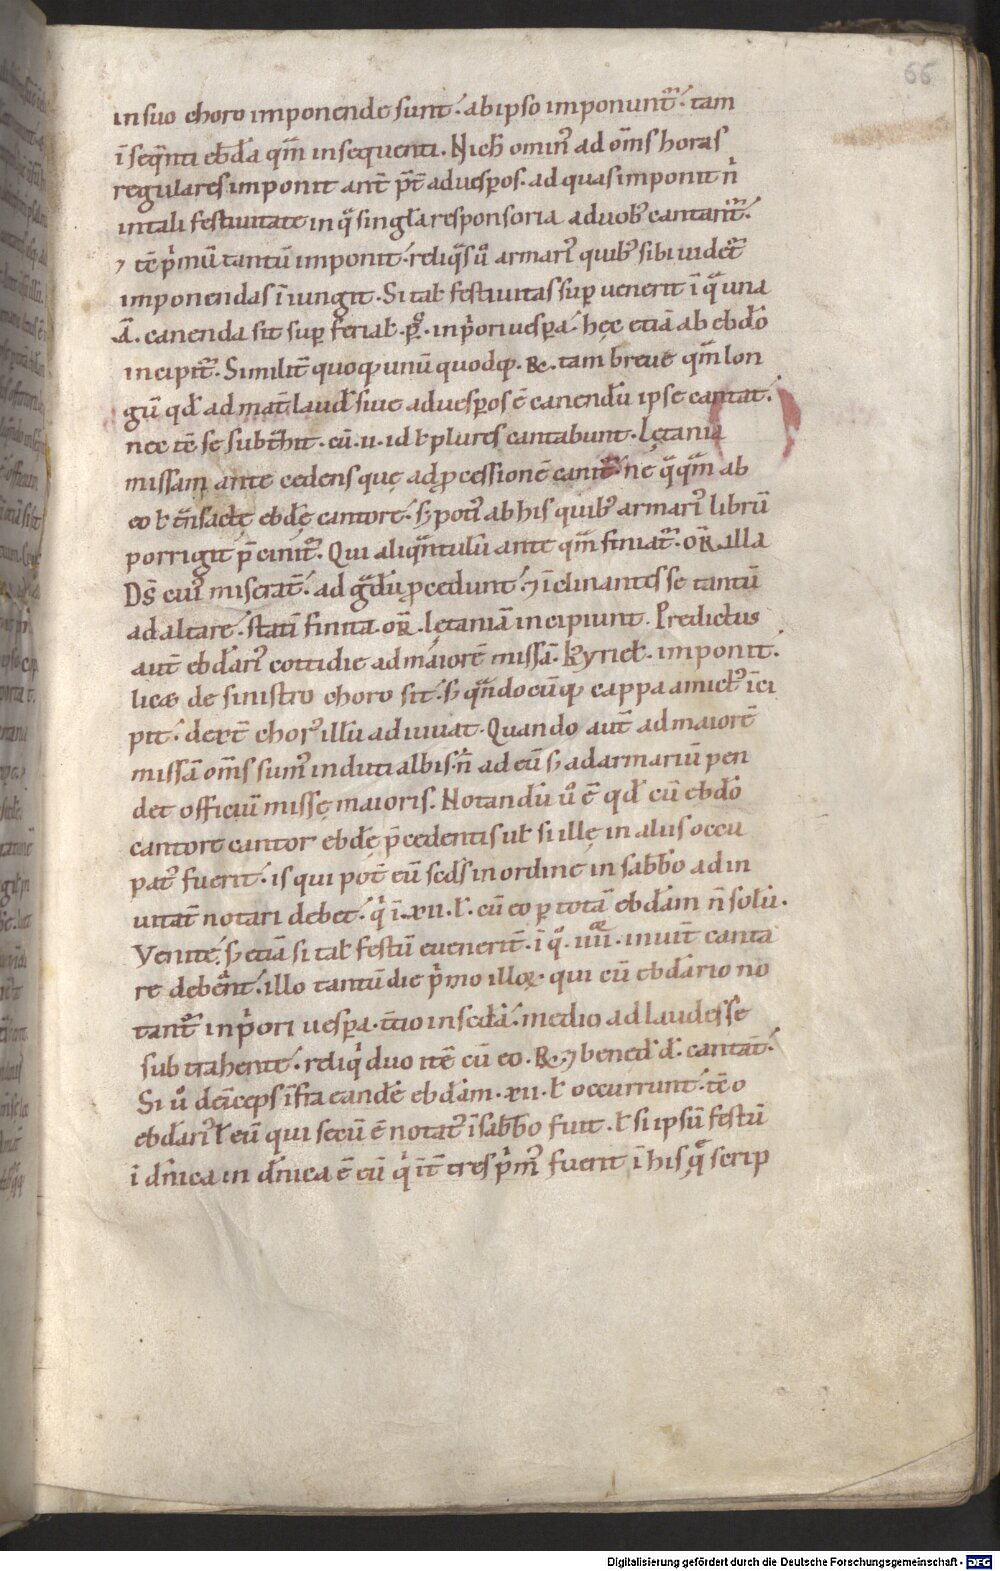 66
in suo choro imponende sunt. ab ipso imponunt᷑. tam
ī seqn̄ti ebd̄a qm̄ in sequenti. Nich̄ omin᷒ ad om̄s horas
regulares imponit ant̄ p̄t̄ ad uesp̄os. ad quas imponit n̄
in tali festiuitate in q̄ singl̄a responsoria a duob᷒ cantant᷑.
⁊ tē p̄mū tantū imponit. reliq̄s ů armari᷒ quib᷒ sibi uidet᷑
imponendas īiungit. Si tal̄ festiuitas sup̄ uenerit ī q̄ una
A̅. canenda sit sup̄ ferial̄. ꝑ. in p̄ori uesp̄a. hęc etiā ab ebd̄o
incipit᷑. Similit̄ quoq̨ unū quodq̨. ℞. tam breue qm̄ lon
gū qd̄ ad mat̄ laud̄ siue ad uesp̄os ē canendū ipse cantat.
nec tē se subt̄hit. cū .u. id ł plures cantabunt. Lętania
missam ante cedens quę ad ꝓcessionē canit᷑. ne q̄qm̄ ab
eo ł t̄nsactę ebd̄ę cantore. s; poti᷒ ab his quib᷒ armari᷒ librū
porrigit p̄cinit᷑. Qui aliqn̄tulū ante qm̄ finiat᷑. or̄. illa
Ds̄ cui᷒ miserat̄. ad gd̄ū ꝓcedunt. ⁊ īclinantes se tantū
ad altare. statī finita. or̄. lętaniā incipiunt. Predictus
aut̄ ebd̄ari᷒ cottidie ad maiorē missā. kyriel̄. imponit.
licæ de sinistro choro sit. s; qn̄docūq̨ cappa amict᷒ īci
pit. dext̄ chor᷒ illū adiuuat. Quando aut̄ ad maiorē
missā om̄s sum᷒ induti albis. n̄ ad eū s; ad armariū pen
det officiū missę maioris. Notandū ů ē qd̄ cū ebd̄o
cantore cantor ebd̄ę p̄cedentis ul̄ si illę in aliis occu
pat᷒ fuerit. is qui pot̄ eū scd̄s in ordine in sabb̄o ad in
uitat̄ notari debet. q̄ ī .xii. l̄. cū eo p̄ totā ebd̄am n̄ solū.
Venite. s; etiā si tal̄ festū euenerit. ī q̊ .iiii. inuit̄ canta
re debent. illo tantū die p̄mo illoꝝ. qui cū ebd̄ario no
tant᷑ in p̄ori uesp̄a. tc̄io in scd̄a. medio ad laudes se
subtrahente. reliq̄ duo itē cū eo. ℞. ⁊ bened̄ d̄. cantat̄.
Si ů deīceps īfra eandē ebd̄am .xii. l̄ occurrunt. tē o
ebd̄ari᷒ ł eū qui secū ē notat᷒ ī sabb̄o fuit. ł si ipsū festū
ī d̄nica in d̄nica ē cū q̄ īt̄ tres p̄m᷒ fuerit ī his q̊ scrip
Digitalisierung gefördert durch die Deutsche Forschungsgemeinschaft - DFG